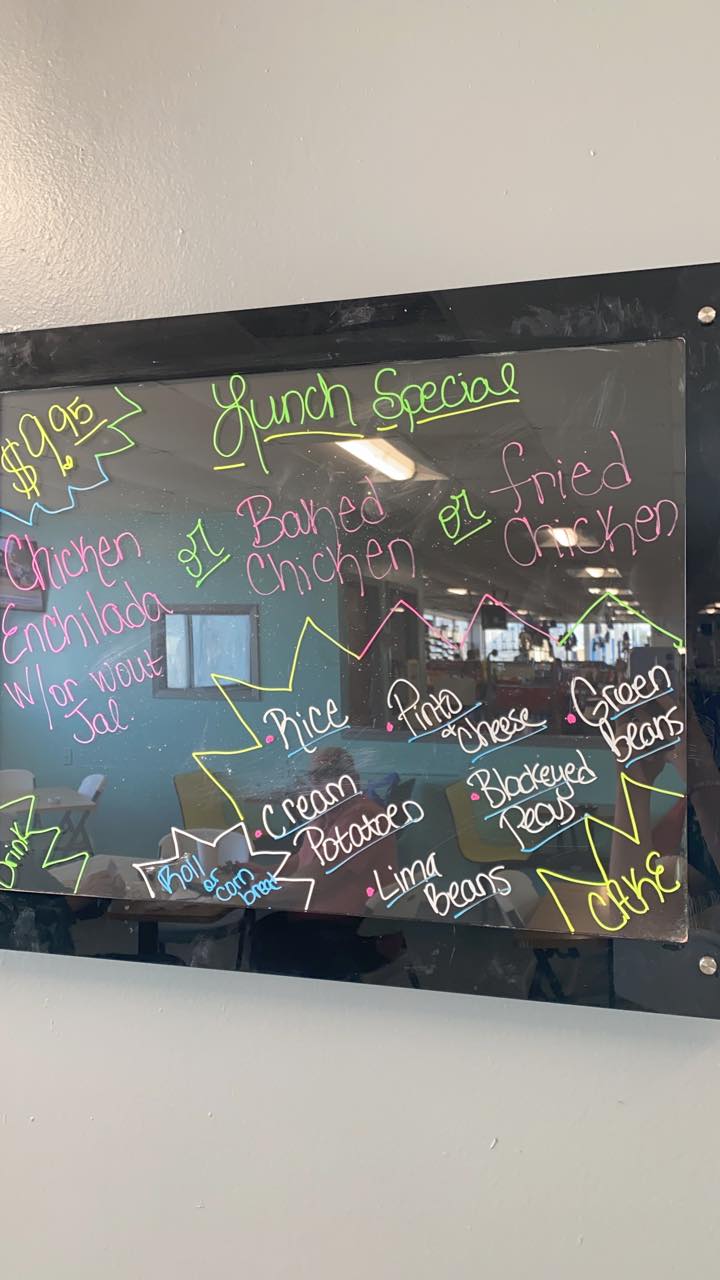 Lunch Special
$9.95
Chicken
Enchilada
w/or wout
Jal.
or
Baked
Chicken
or
fried
Chicken
Rice
Pinto
& Cheese
Green
beans
Cream
Potatoes
Blackeyed
Peas
Lima
Beans
Drink
Roll
or
corn
bread
CAKE